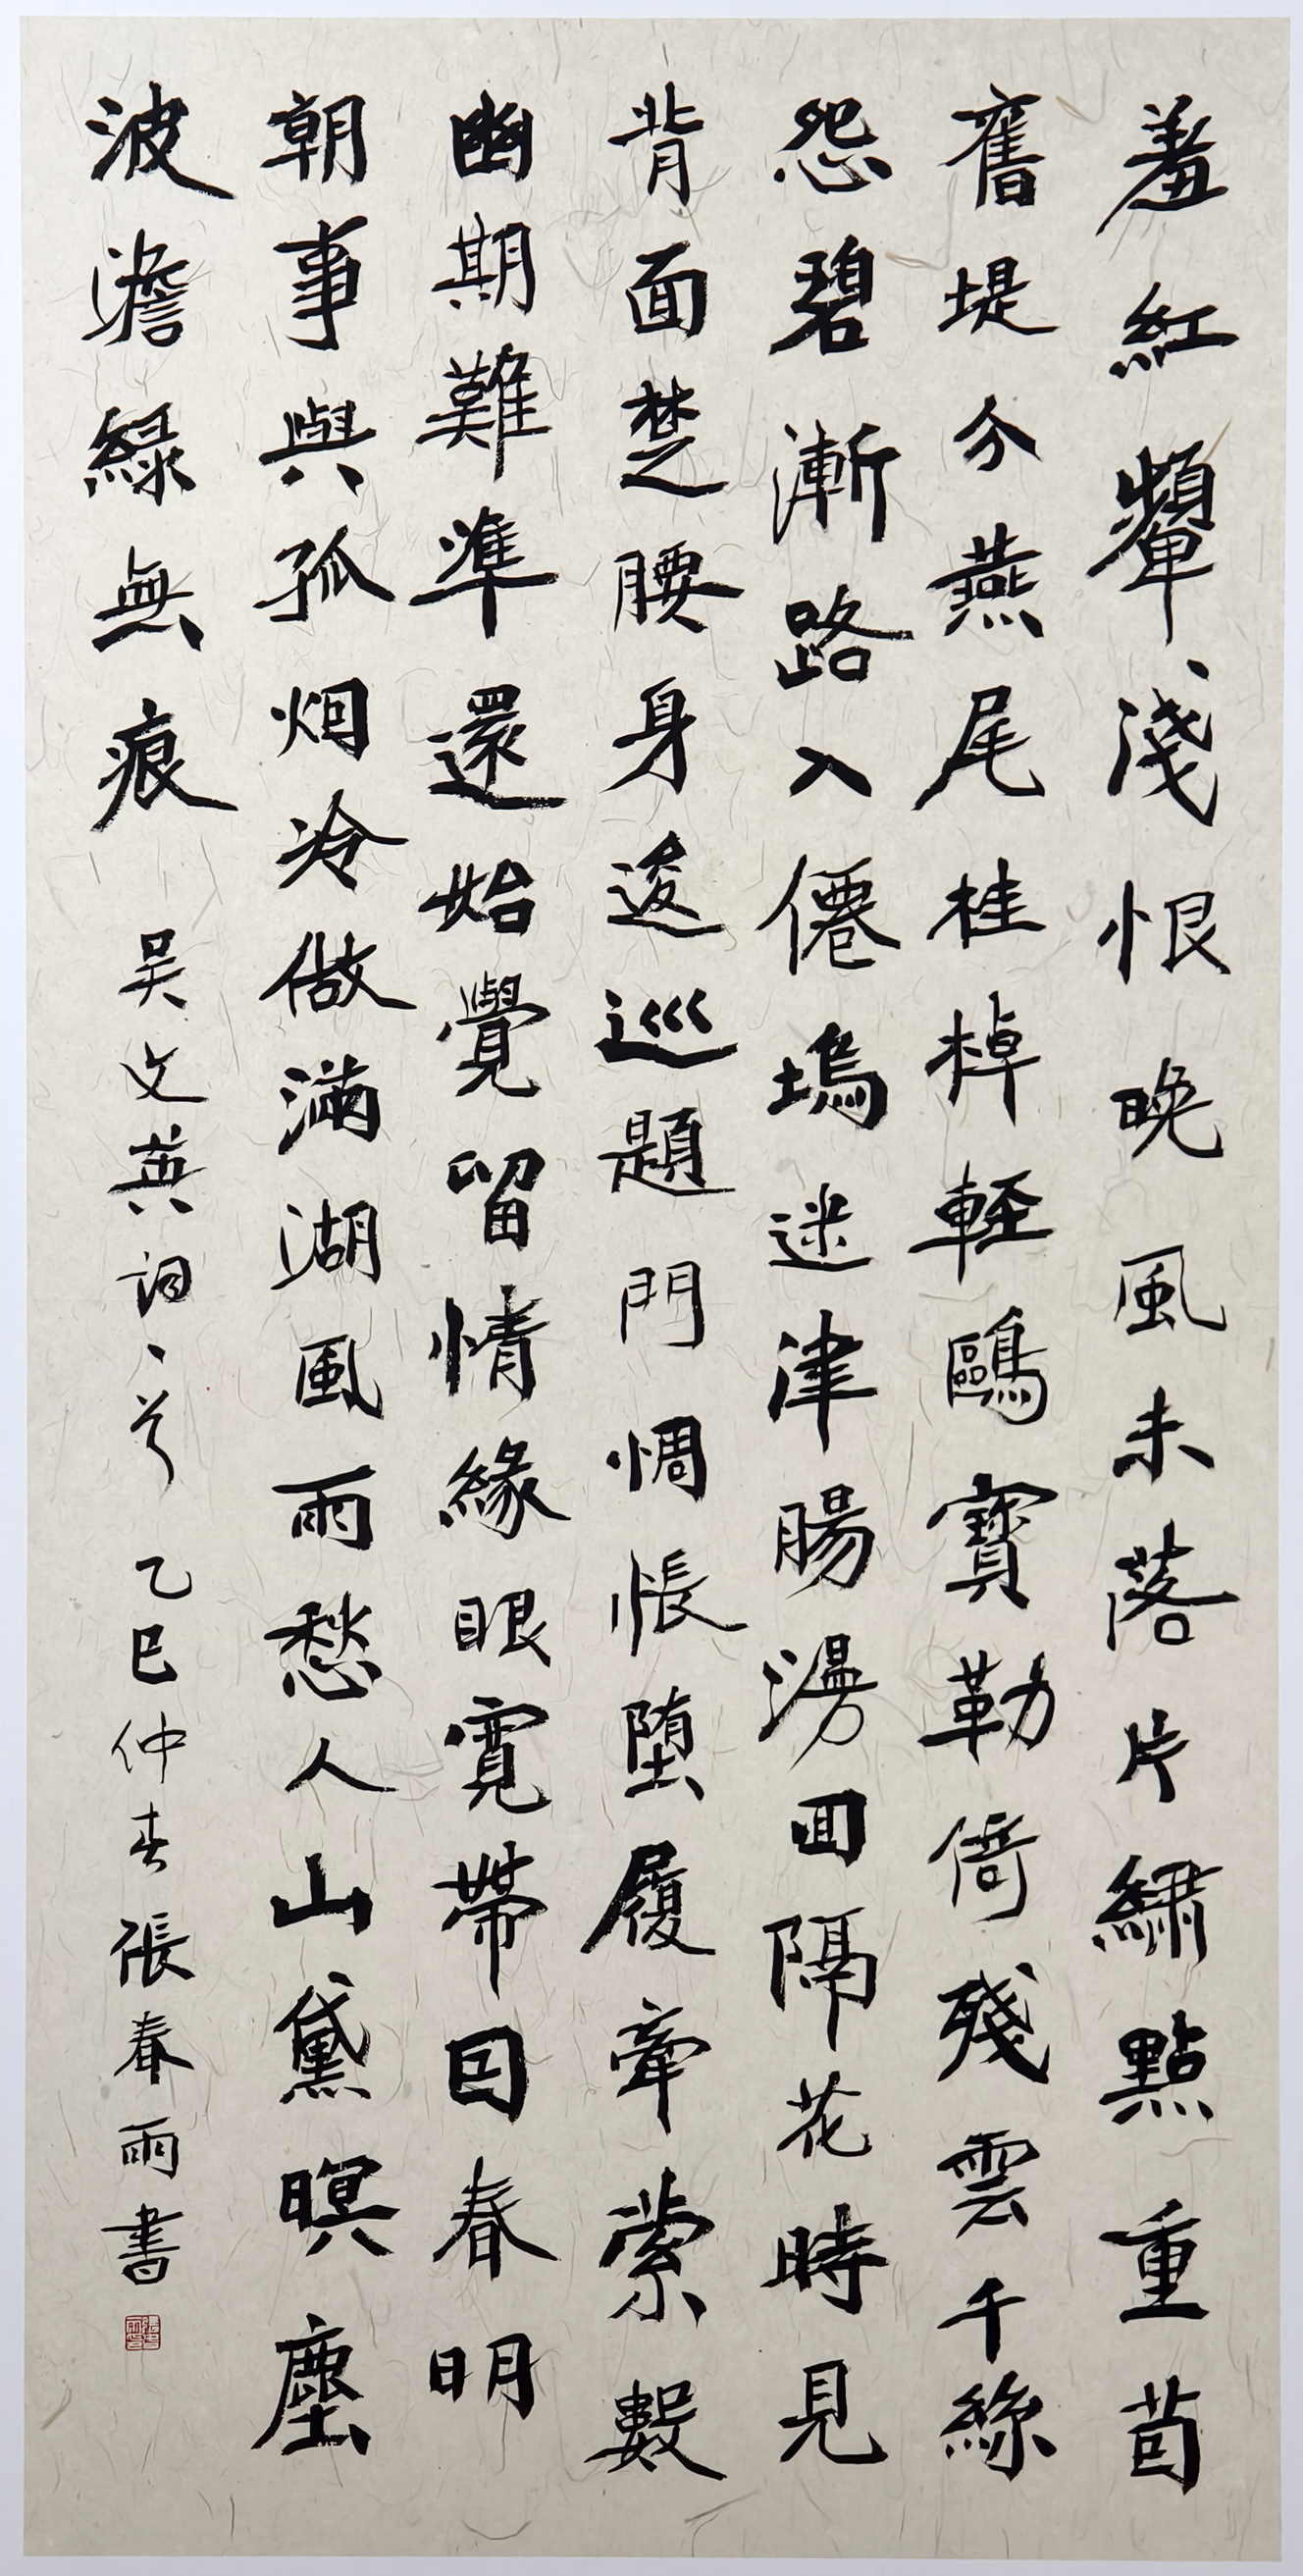 羞紅顰淺恨晚風未落片繡點重茵
舊堤分燕尾桂棹輕鷗寶勒倚殘雲千絲
怨碧漸路入僊塢迷津腸漫回隔花時見
背面楚腰身逡巡題門惆悵墮履牽縈數
幽期難準還始覺留情緣眼寬帶因春明
朝事與孤烟冷做滿湖風雨愁人山黛暝塵
波澹綠無痕
吴文英詞一首乙巳仲春張春雨書